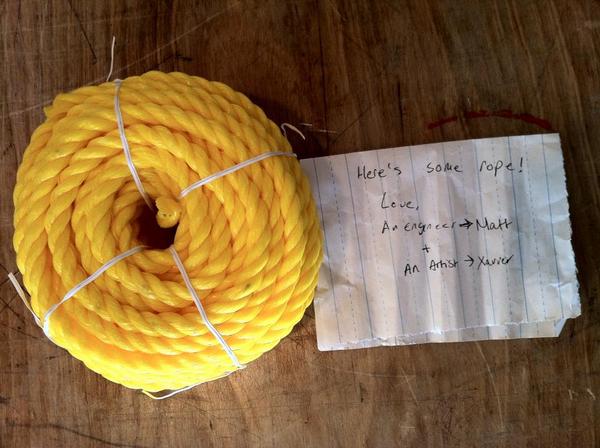 Here's some rope!
Love,
An engineer → Matt
+
An Artist → Xavier